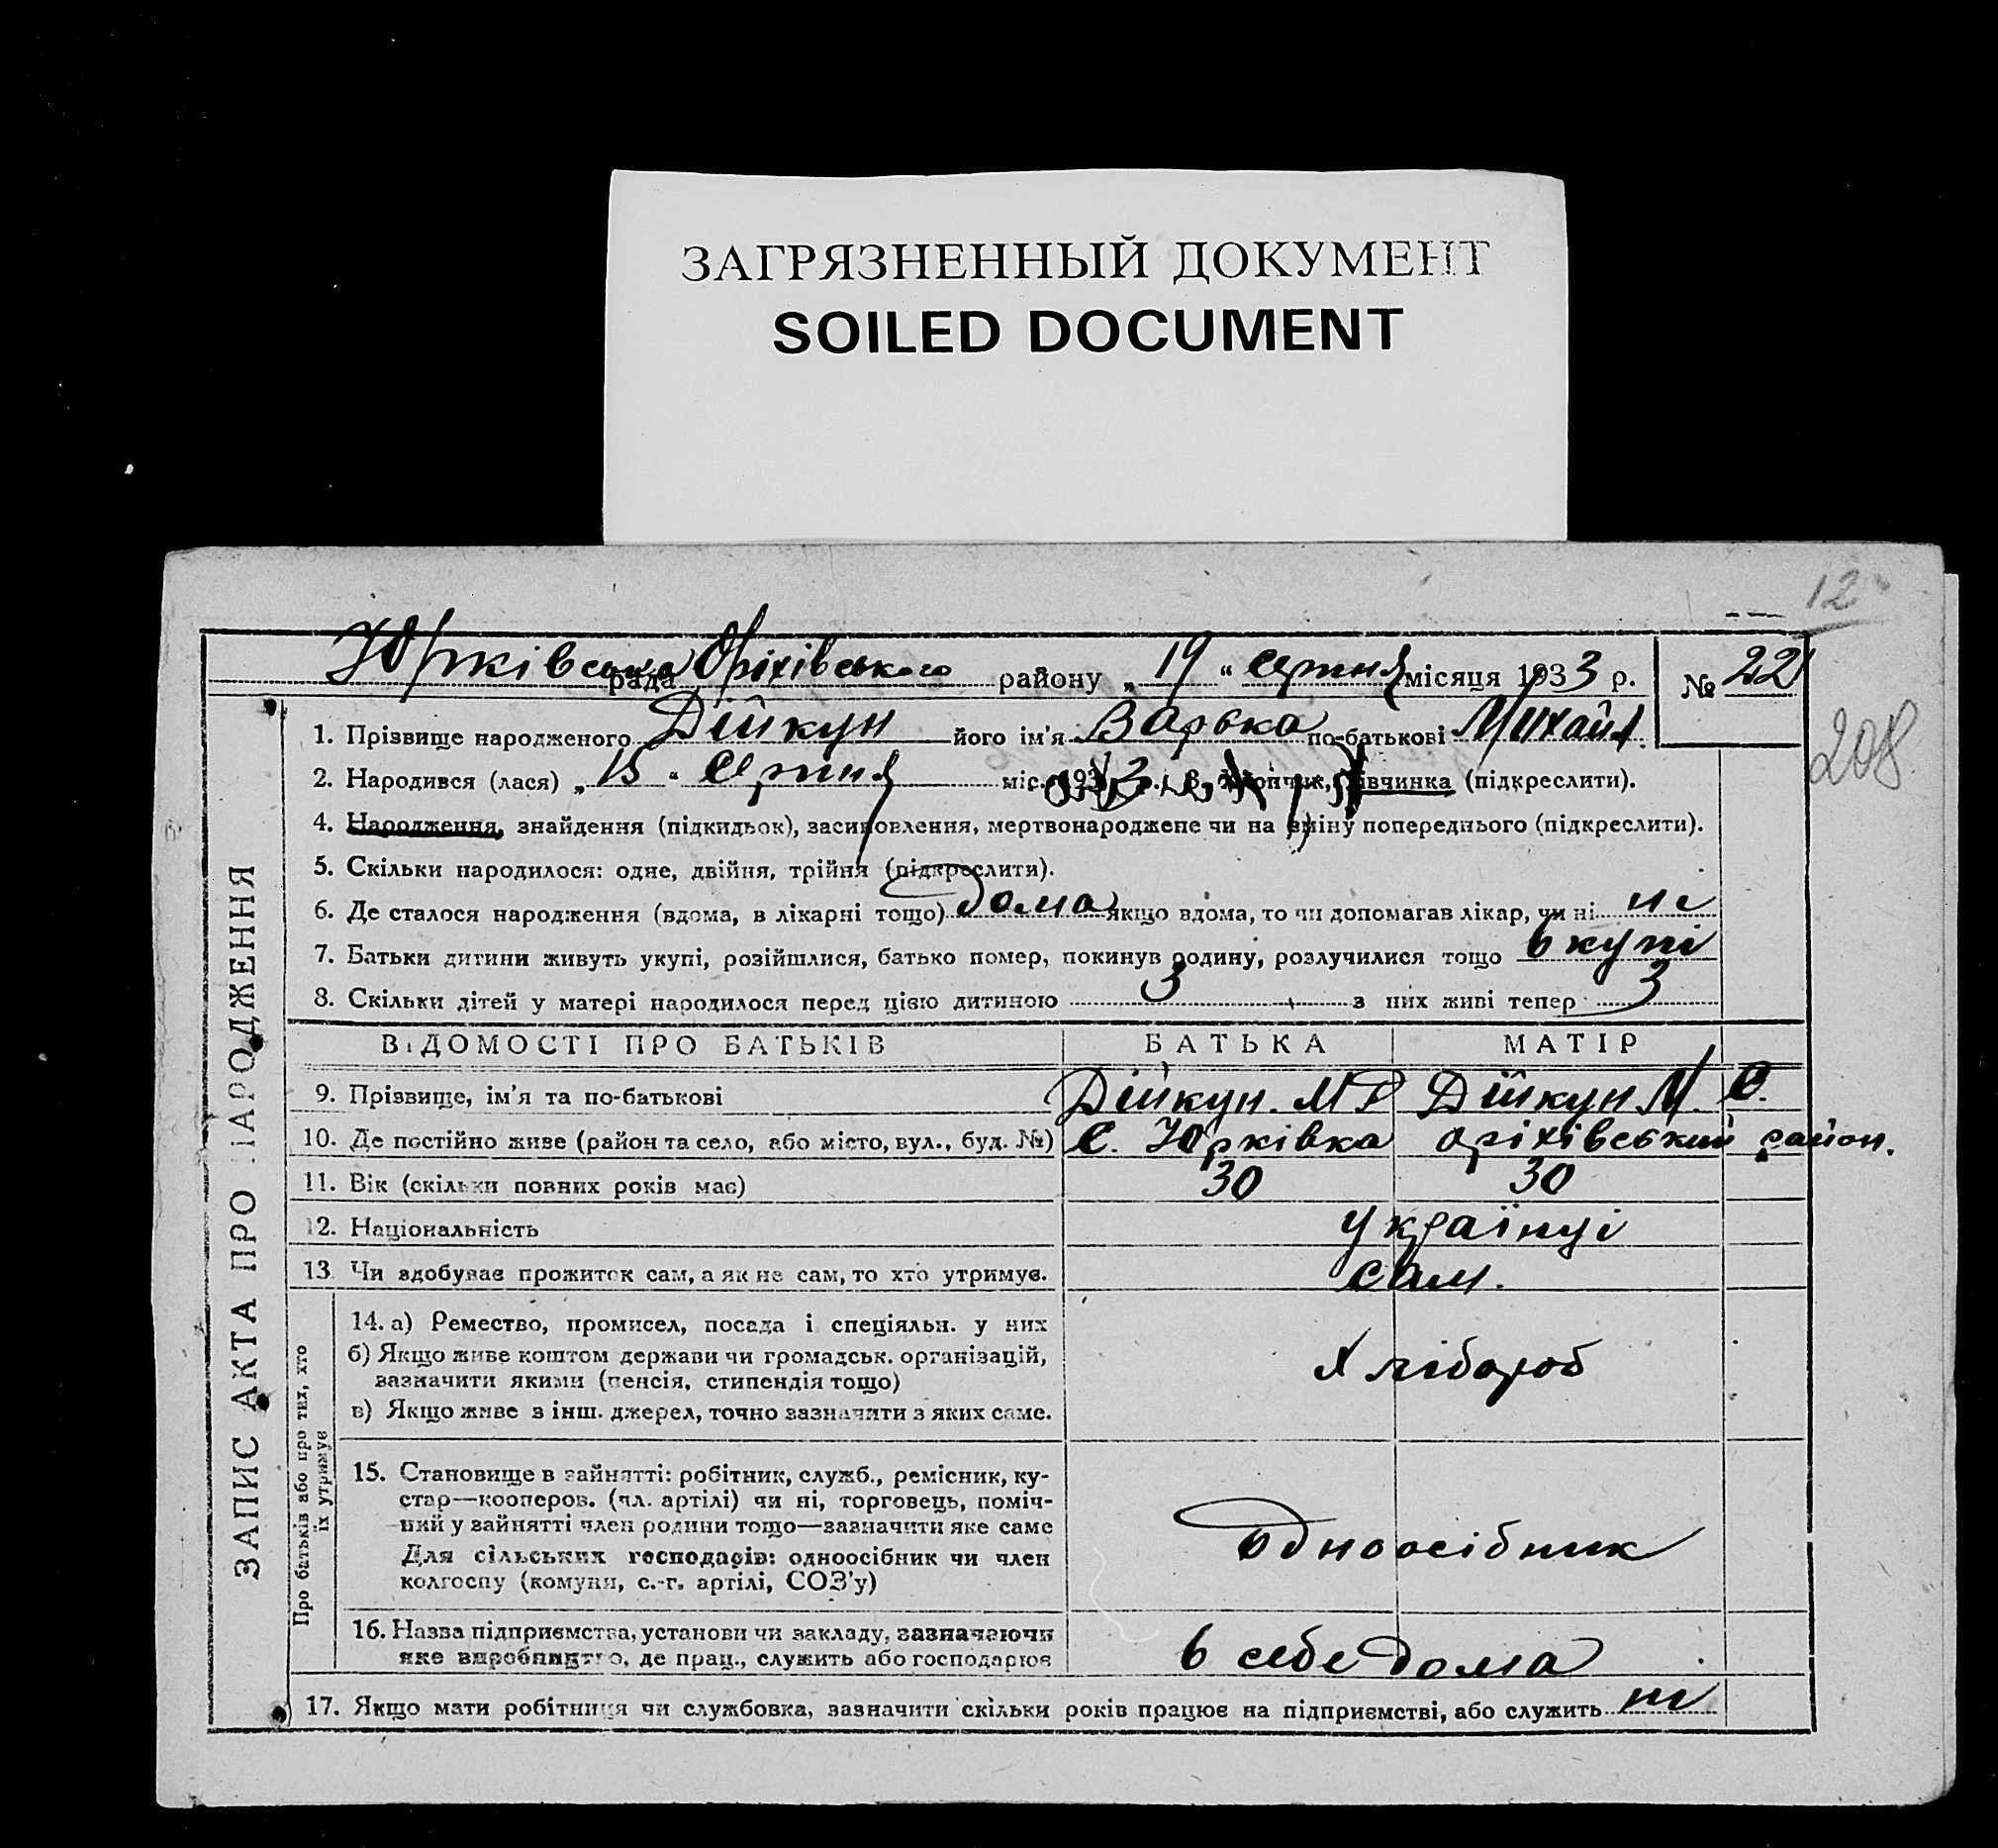 ЗАГРЯЗНЕННЫЙ ДОКУМЕНТ
SOILED DOCUMENT
12
Юрківська рада Оріхівського району „19“ серпня місяця 1933 р. № 22
208
1. Прізвище народженого Дійкун його ім'я Варька по-батькові Михайл.
2. Народився (лася) „15“ серпня міс. 1933 р. 3. Хлопчик, дівчинка (підкреслити).
4. Народження, знайдення (підкидьок), засиновлення, мертвонароджене чи на зміну попереднього (підкреслити).
5. Скільки народилося: одне, двійня, трійня (підкреслити).
6. Де сталося народження (вдома, в лікарні тощо) дома якщо вдома, то чи допомагав лікар, чи ні ні
7. Батьки дитини живуть укупі, розійшлися, батько помер, покинув родину, розлучилися тощо вкупі
8. Скільки дітей у матері народилося перед цією дитиною 3 з них живі тепер 3
ЗАПИС АКТА ПРО НАРОДЖЕННЯ
ВІДОМОСТІ ПРО БАТЬКІВ БАТЬКА МАТІР
9. Прізвище, ім'я та по-батькові Дійкун. М Р Дійкун М. С.
10. Де постійно живе (район та село, або місто, вул., буд. №) С. Юрківка оріхівський район.
11. Вік (скільки повних років має) 30 30
12. Національність Українці
13. Чи здобуває прожиток сам, а як не сам, то хто утримує. сам.
Про батьків або про тих, хто
їх утримує
14. а) Ремество, промисел, посада і спеціяльн. у них
б) Якщо живе коштом держави чи громадськ. організацій,
зазначити якими (пенсія, стипендія тощо)
в) Якщо живе з інш. джерел, точно зазначити з яких саме.
Хлібороб
15. Становище в зайнятті: робітник, служб., ремісник, ку-
стар—кооперов. (чл. артілі) чи ні, торговець, поміч-
ний у зайнятті член родини тощо—зазначити яке саме
Для сільських господарів: одноосібник чи член
колгоспу (комуни, с.-г. артілі, СОЗ'у)
одноосібник
16. Назва підприємства, установи чи закладу, зазначаючи
яке виробництво, де прац., служить або господарює
в себе дома
17. Якщо мати робітниця чи службовка, зазначити скільки років працює на підприємстві, або служить ні